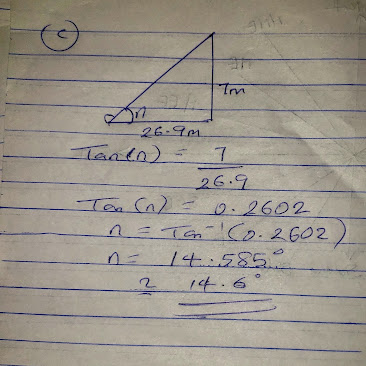 (c)
7m
n
26.9m
Tan(n) = 7/26.9
Tan(n) = 0.2602
n = Tan⁻¹(0.2602)
n = 14.585°
≈ 14.6°